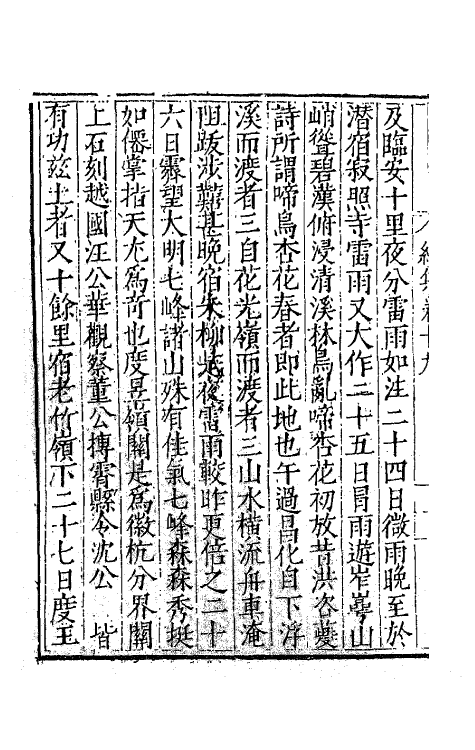 及臨安十里夜分雷雨如注二十四日微雨晚至於
潛宿寂照寺雷雨又大作二十五日冐雨遊岝㟧山
峭聳碧漢俯浸清溪林鳥亂啼杏花初放昔洪咨夔
詩所謂啼鳥杏花春者即此地也午過昌化自下浮
溪而渡者三自花光嶺而渡者三山水橫流舟車淹
阻跋涉難甚晚宿朱柳是夜雷雨較昨更倍之二十
六日霽望大明七峰諸山殊有佳氣七峰森森秀挺
如僊掌指天尤爲奇也度昱嶺關是爲徽杭分界關
上石刻越國汪公華觀察董公摶霄縣令沈公 皆
有功兹土者又十餘里宿老竹嶺下二十七日度玉